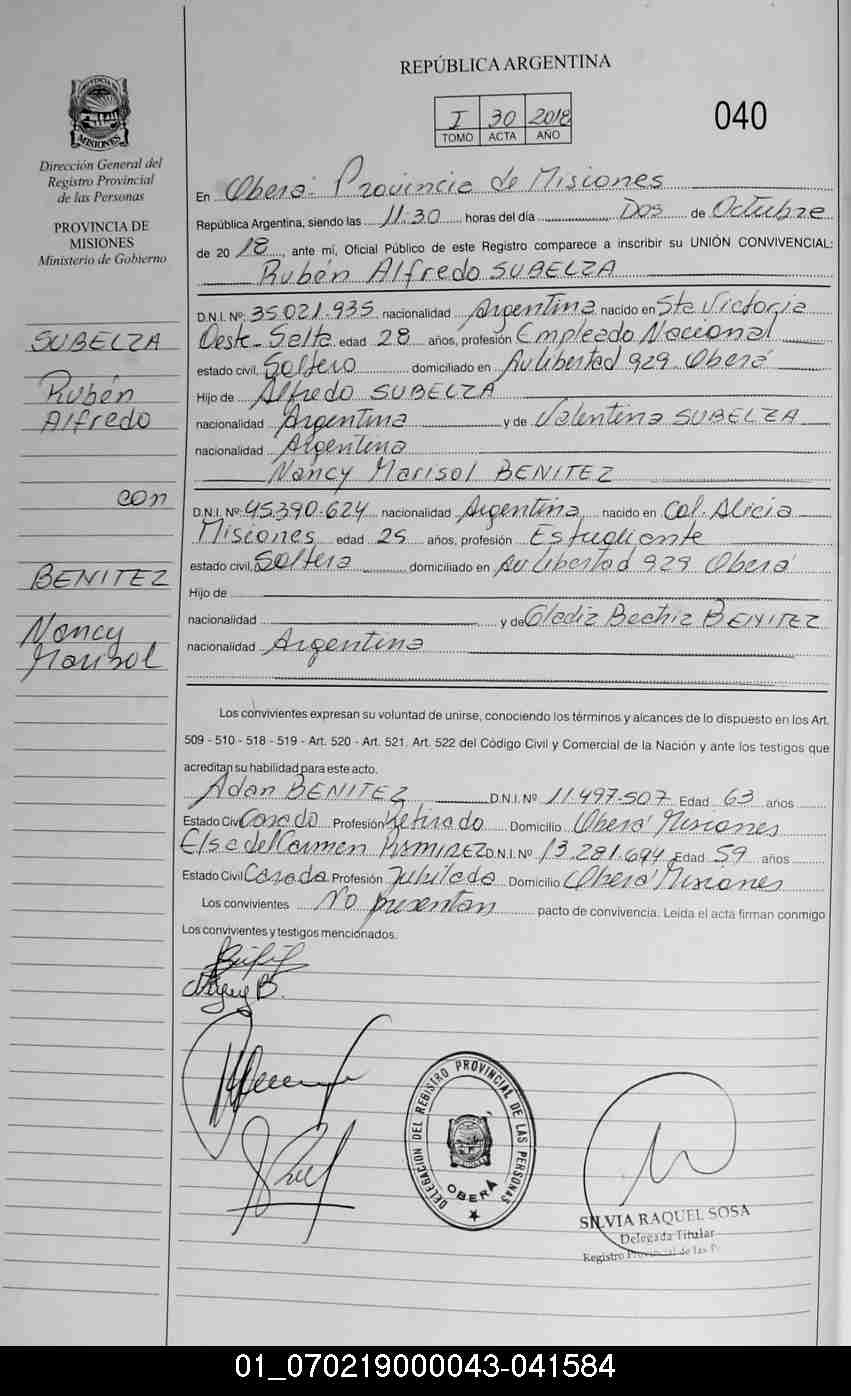 REPÚBLICA ARGENTINA
I 30 2018
TOMO ACTA AÑO
040
PROVINCIA DE
MISIONES
Dirección General del
Registro Provincial
de las Personas
PROVINCIA DE
MISIONES
Ministerio de Gobierno
SUBELZA
Rubén
Alfredo
con
BENITEZ
Nancy
Marisol
En Oberá. Provincia de Misiones
República Argentina, siendo las 11:30 horas del día Dos de Octubre
de 20 18, ante mí, Oficial Público de este Registro comparece a inscribir su UNIÓN CONVIVENCIAL:
Rubén Alfredo SUBELZA
D.N.I. Nº: 35.021.935 nacionalidad Argentina nacido en Sta Victoria
Oeste - Salta edad 28 años, profesión Empleado Nacional
estado civil, Soltero domiciliado en Av Libertad 929 Oberá
Hijo de Alfredo SUBELZA
nacionalidad Argentina y de Valentina SUBELZA
nacionalidad Argentina
Nancy Marisol BENITEZ
D.N.I. Nº: 95.390.624 nacionalidad Argentina nacido en Col. Alicia
Misiones edad 25 años, profesión Estudiante
estado civil, Soltera domiciliado en Av Libertad 929 Oberá
Hijo de
nacionalidad y de Gladiz Beatriz BENITEZ
nacionalidad Argentina
Los convivientes expresan su voluntad de unirse, conociendo los términos y alcances de lo dispuesto en los Art.
509 - 510 - 518 - 519 - Art. 520 - Art. 521, Art. 522 del Código Civil y Comercial de la Nación y ante los testigos que
acreditan su habilidad para este acto.
Adan BENITEZ D.N.I. Nº 11.497.507 Edad 63 años
Estado Civil Casado Profesión Retirado Domicilio Oberá Misiones
Elsa del Carmen RAMIREZ D.N.I. Nº 13.281.694 Edad 59 años
Estado Civil Casada Profesión Jubilada Domicilio Oberá Misiones
Los convivientes No presentan pacto de convivencia. Leída el acta firman conmigo
Los convivientes y testigos mencionados.
DELEGACION DEL REGISTRO PROVINCIAL DE LAS PERSONAS
OBERÁ
SILVIA RAQUEL SOSA
Delegada Titular
Registro Provincial de las P
01_070219000043-041584